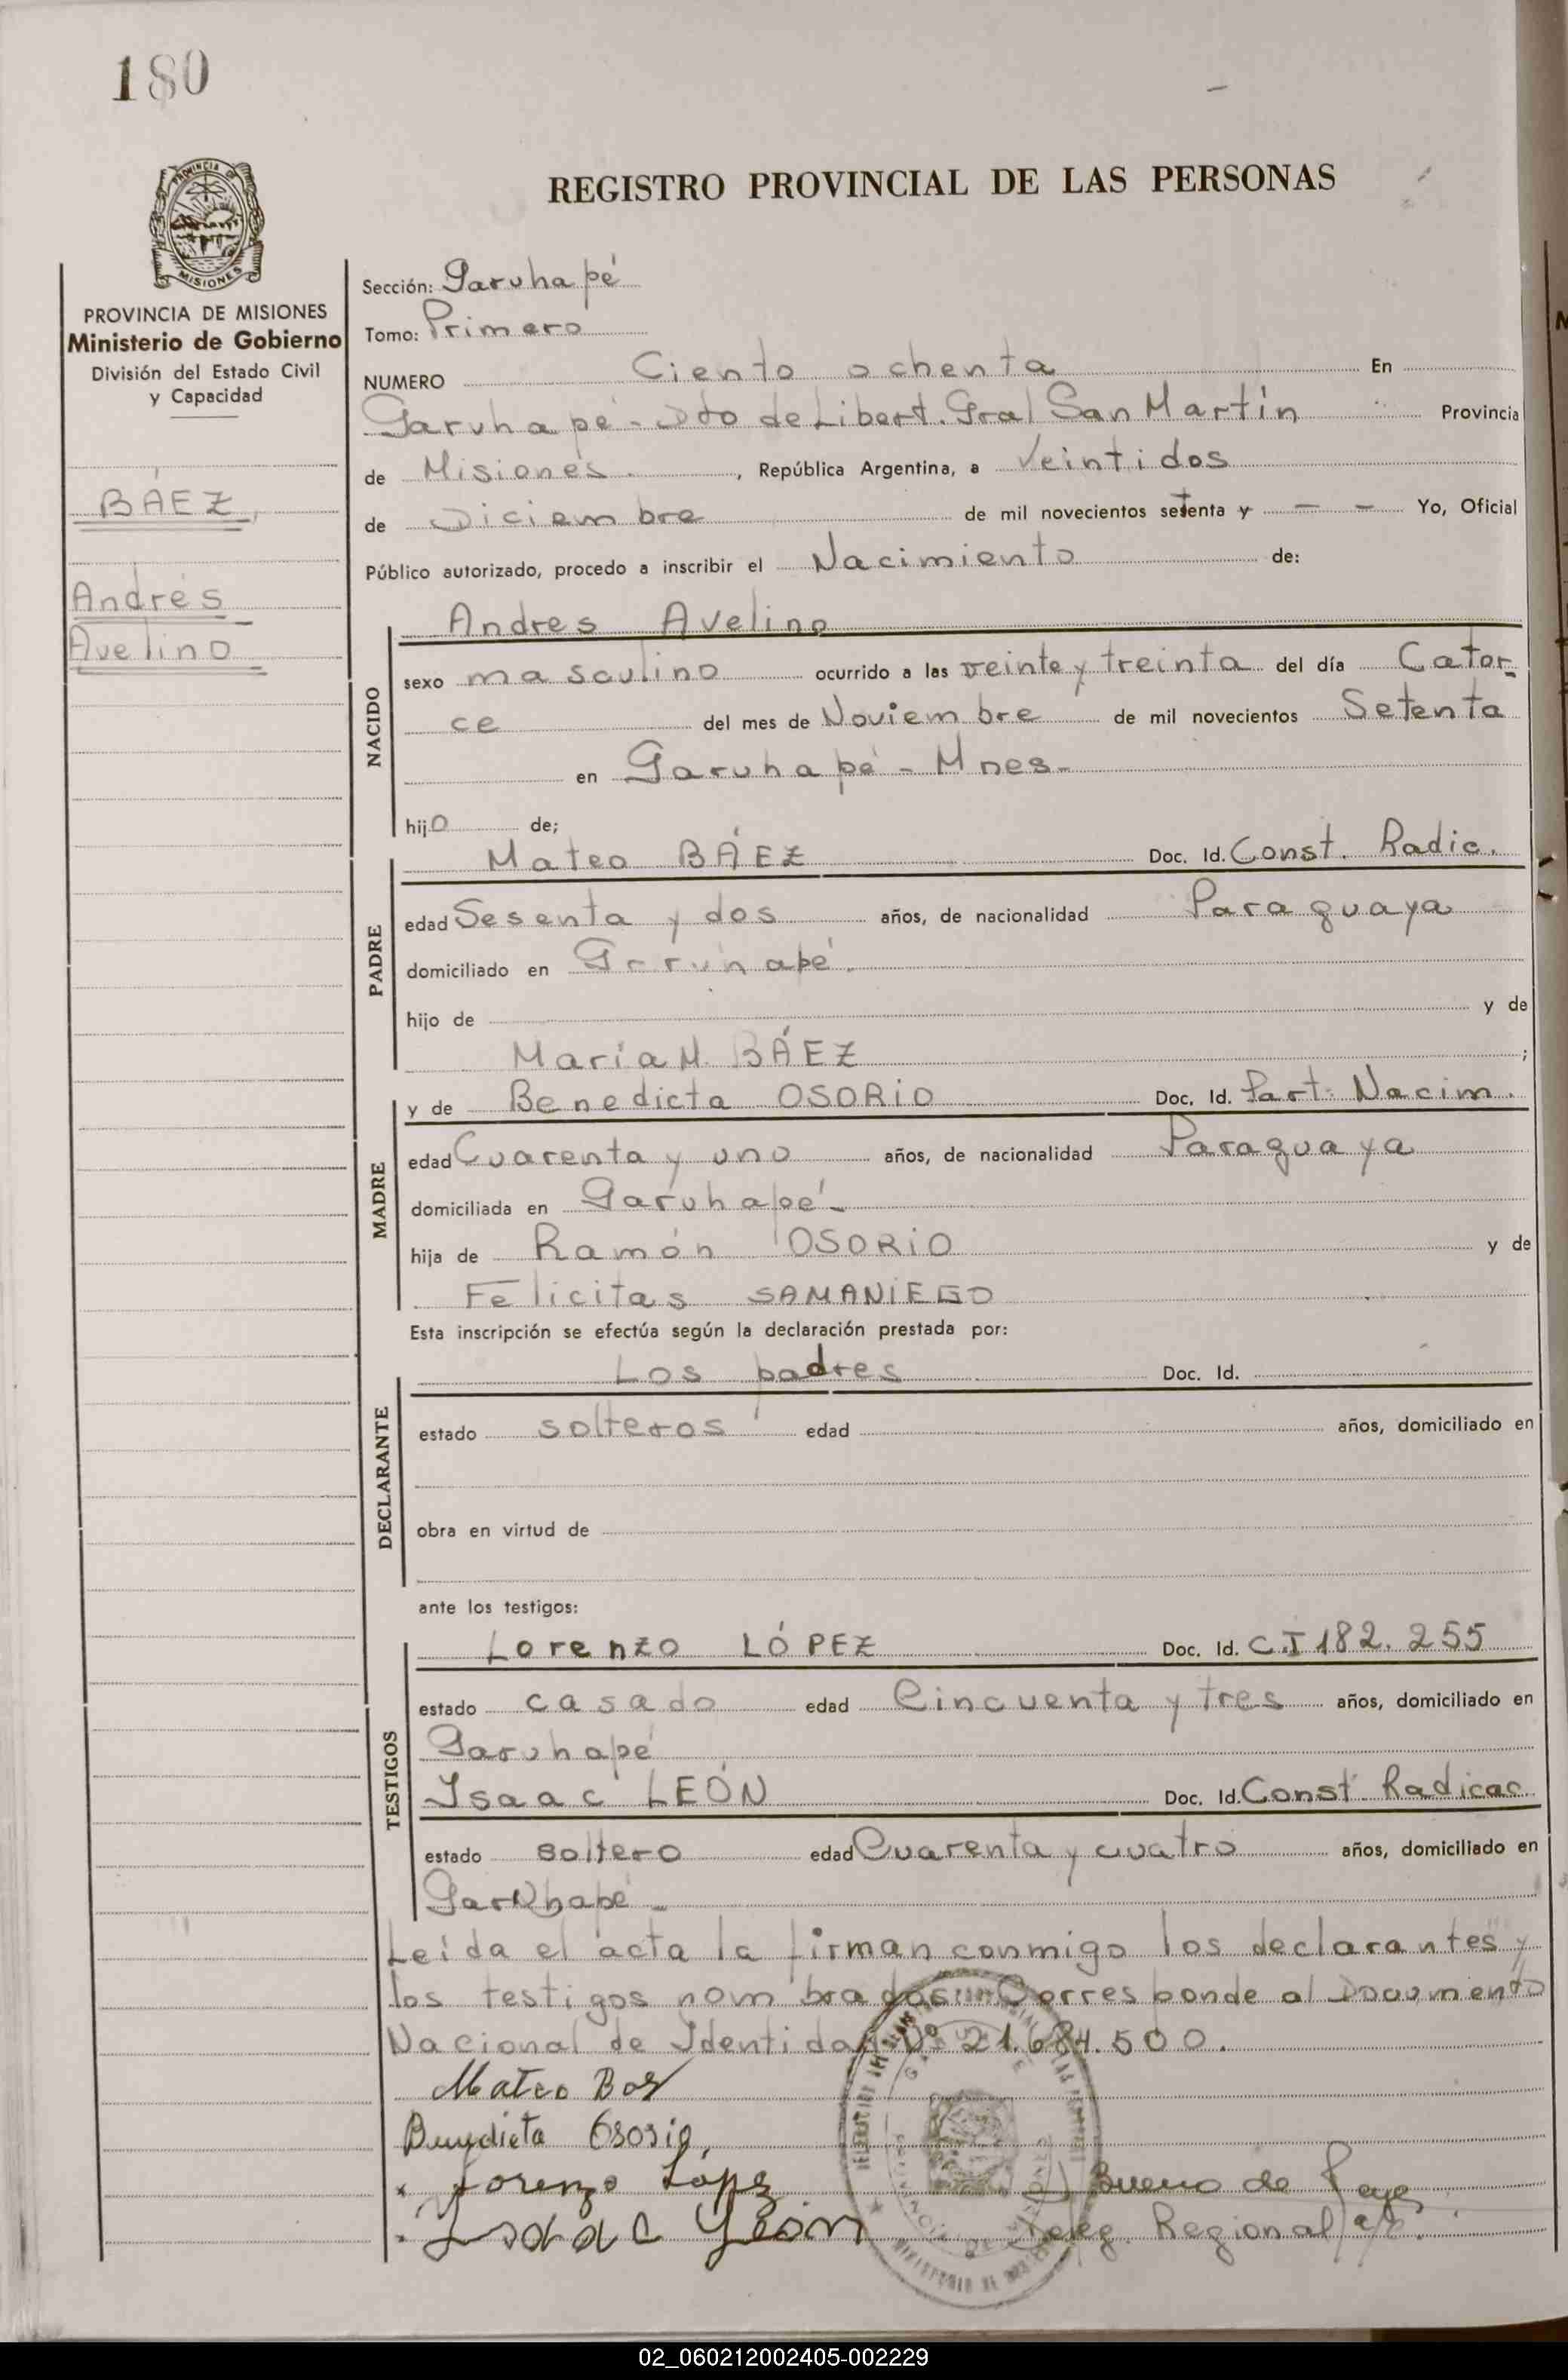 180
REGISTRO PROVINCIAL DE LAS PERSONAS
PROVINCIA DE MISIONES
Ministerio de Gobierno
División del Estado Civil
y Capacidad
BÁEZ,
Andrés
Avelino
Sección: Garuhapé
Tomo: Primero
NUMERO Ciento ochenta En
Garuhapé - Dto de Libert. Gral San Martín Provincia
de Misiones. , República Argentina, a Veintidos
de Diciembre de mil novecientos setenta y — — Yo, Oficial
Público autorizado, procedo a inscribir el Nacimiento de:
NACIDO
Andres Avelino
sexo masculino ocurrido a las veinte y treinta del día Cator-
ce del mes de Noviembre de mil novecientos Setenta
en Garuhapé - Mnes-
hijo de;
PADRE
Mateo BÁEZ Doc. Id. Const. Radic.
edad Sesenta y dos años, de nacionalidad Paraguaya
domiciliado en Garuhapé.
hijo de y de
María M. BÁEZ ;
MADRE
y de Benedicta OSORiO Doc. Id. Part. Nacim.
edad Cuarenta y uno años, de nacionalidad Paraguaya
domiciliada en Garuhapé-
hija de Ramón OSORiO y de
Felicitas SAMANiEGO
Esta inscripción se efectúa según la declaración prestada por:
DECLARANTE
Los padres Doc. Id.
estado solteros edad años, domiciliado en
obra en virtud de
ante los testigos:
TESTIGOS
Lorenzo LÓPEZ Doc. Id. C.I 182.255
estado casado edad Cincuenta y tres años, domiciliado en
Garuhapé
Isaac LEÓN Doc. Id. Const. Radicac.
estado soltero edad Cuarenta y cuatro años, domiciliado en
Garuhapé -
Leída el acta la firman conmigo los declarantes y
los testigos nombrados. Corresponde al Documento
Nacional de Identidad Nº 21.684.500.
Mateo
Benedicta Ososio,
Lorenzo López
Isaac León
Bueno de
Deleg. Regional a/c.
02_060212002405-002229